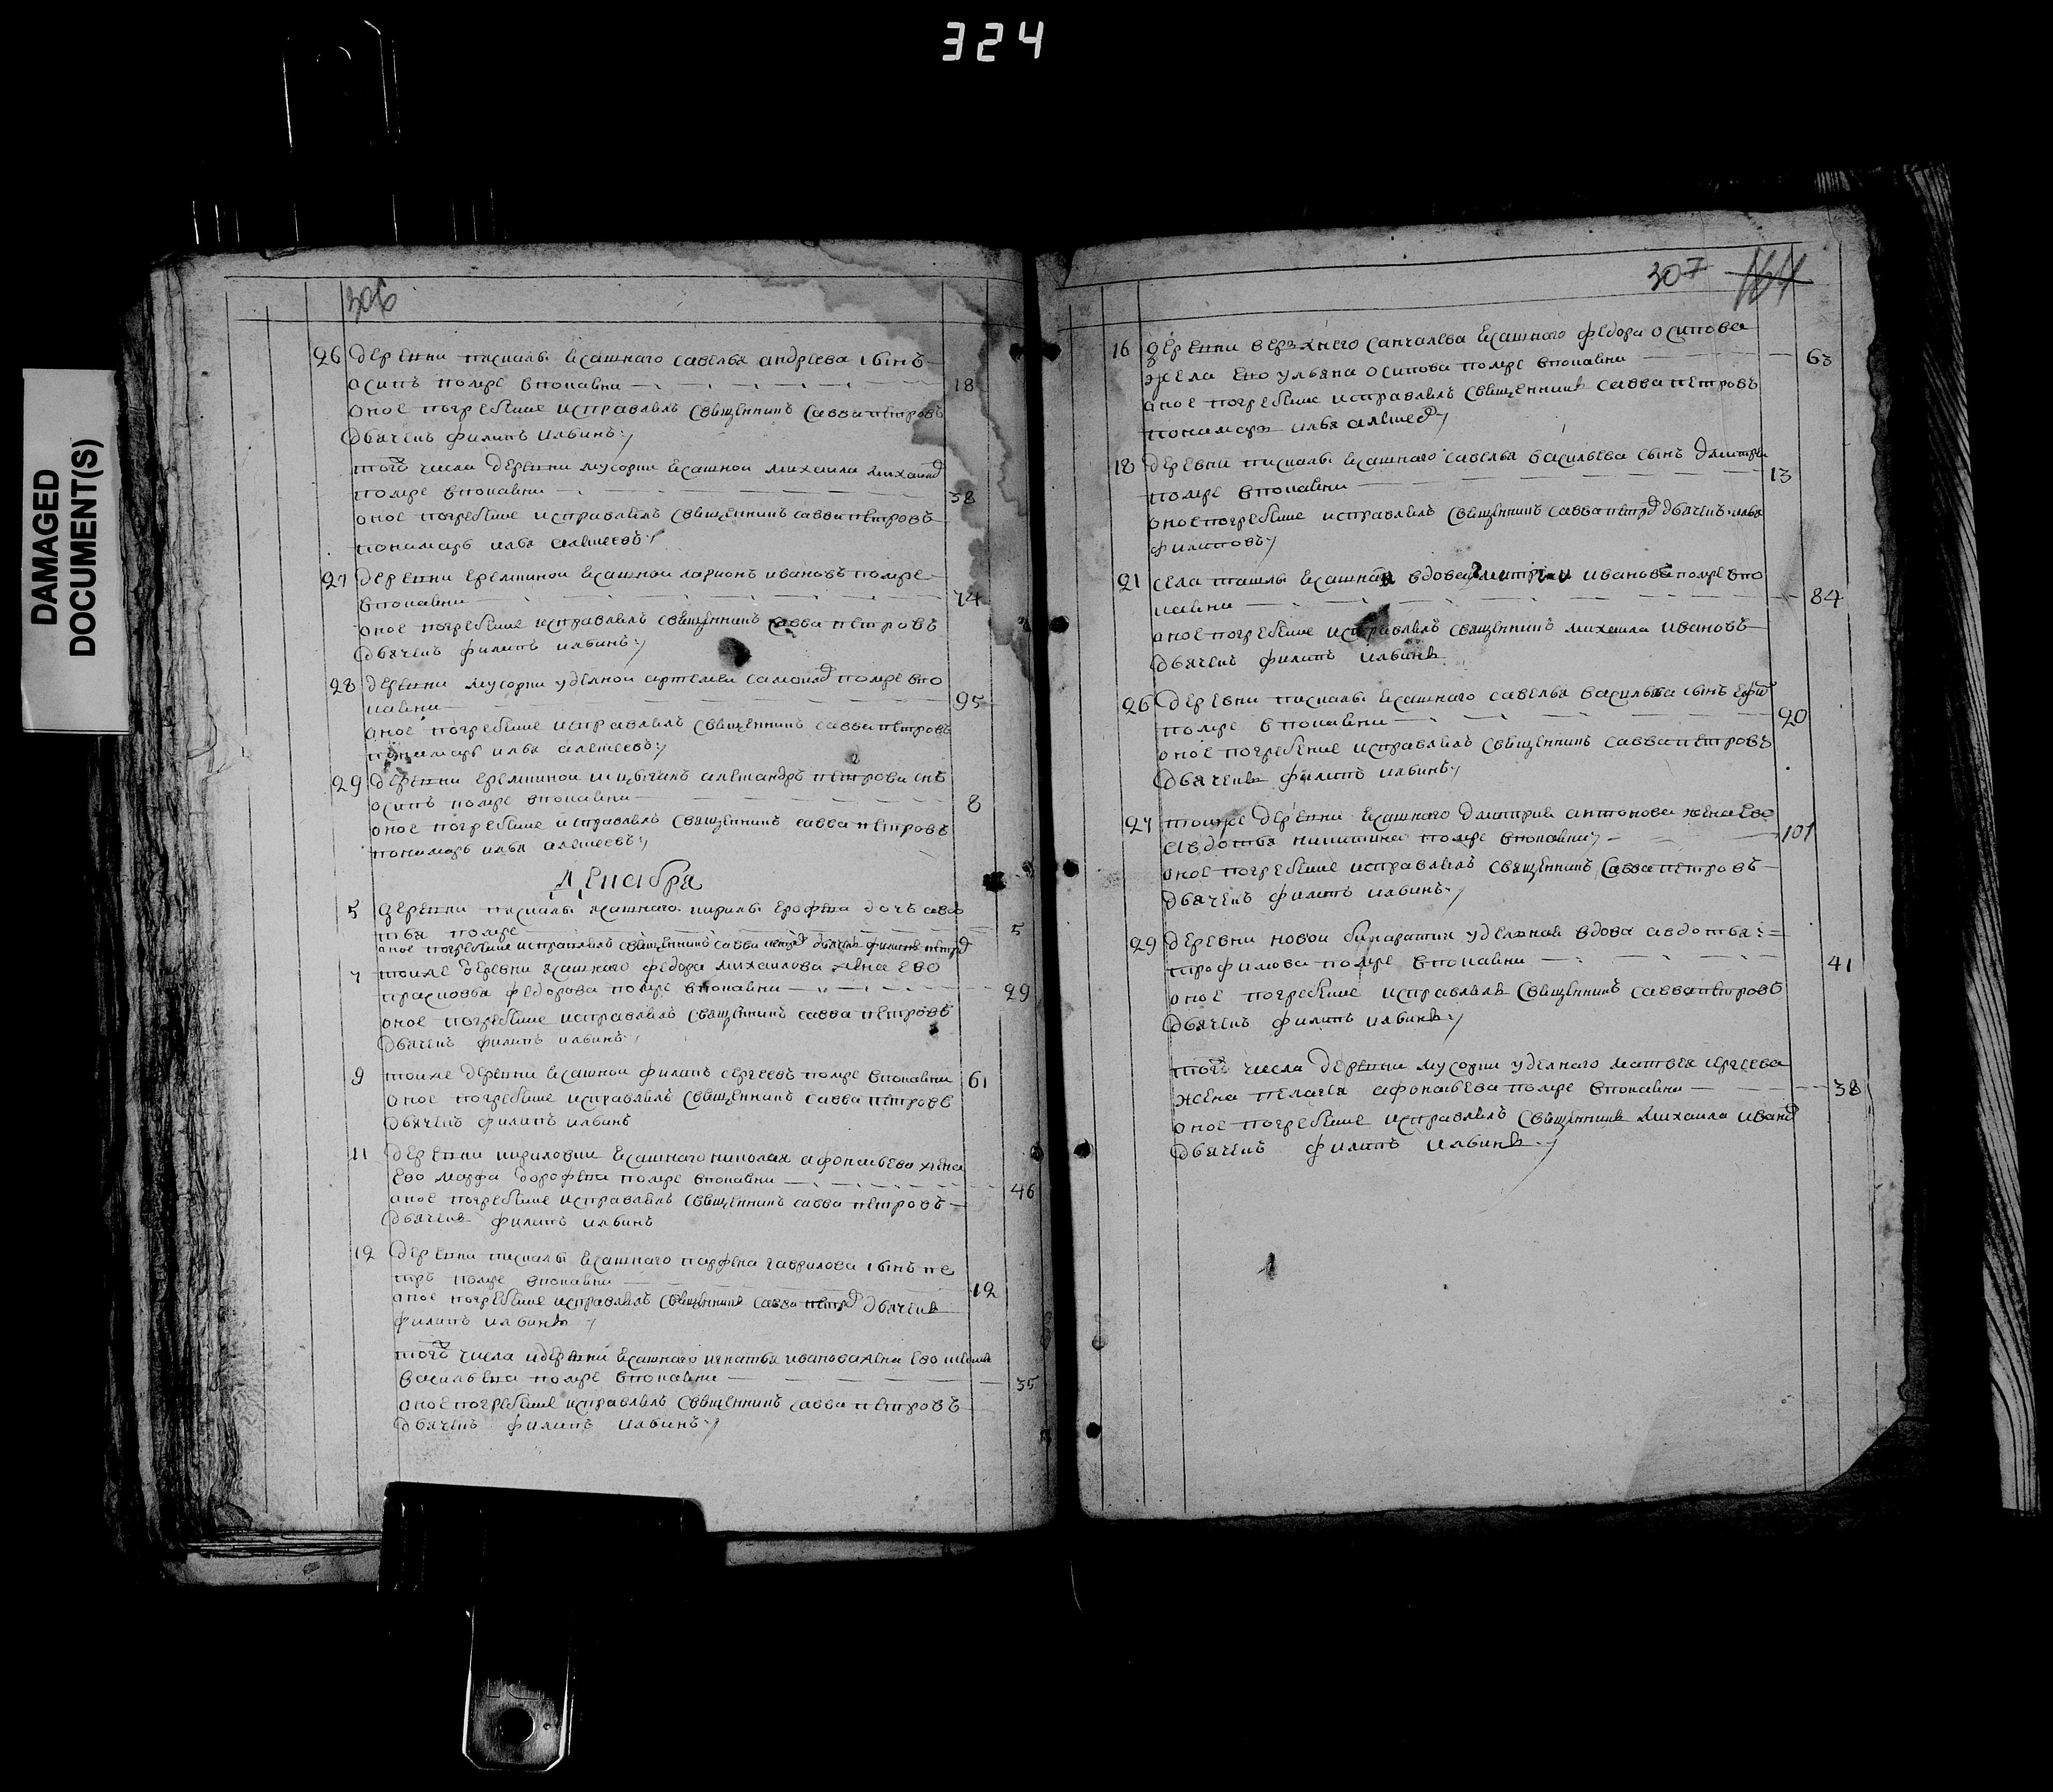 324
DAMAGED
DOCUMENT(S)
306
26 деревни пискалы ясашнаго савелья андреева сынъ
осипъ помре впокаянии 18
оное погребение исправлялъ священникъ савва петровъ
дьячекъ филипъ ильинъ
того числа деревни мусорки ясашной михаила михаилов
помре впокаянии 38
оное погребение исправлялъ священникъ савва петровъ
пономарь илья алексеевъ
27 деревни еремкиной ясашной ларионъ ивановъ помре
впокаянии 74
оное погребение исправлялъ священникъ савва петровъ
дьячекъ филипъ ильинъ
28 деревни мусорки уделной артемеи самоилов помре впо
каянии 95
оное погребение исправлялъ священникъ савва петровъ
пономарь илья алексеевъ
29 деревни еремкиной александръ петрова снъ
осипъ помре впокаянии 8
оное погребение исправлялъ священникъ савва петровъ
пономарь илья алексеевъ
Декабря
5 деревни пискалы ясашнаго кирилы ерофеева дочь авдо
тья помре 5
оное погребение исправлялъ священникъ савва петров дьячекъ филипъ
7 тоиже деревни ясашнаго федора михаилова жена ево
прасковья федорова помре впокаянии 29
оное погребение исправлялъ священникъ савва петровъ
дьячекъ филипъ ильинъ
9 тоиже деревни ясашной филипъ сергеевъ помре впокаянии 61
оное погребение исправлялъ священникъ савва петровъ
дьячекъ филипъ ильинъ
11 деревни кириловки ясашнаго николая афонасьева жена
ево марфа дорофеева помре впокаянии 46
оное погребение исправлялъ священникъ савва петровъ
дьячекъ филипъ ильинъ
12 деревни пискалы ясашнаго парфена гаврилова сынъ пе
тръ помре впокаянии 12
оное погребение исправлялъ священникъ савва петров дьячекъ
филипъ ильинъ
того числа ясашнаго игнатья иванова жена ево
васильева помре впокаянии 35
оное погребение исправлялъ священникъ савва петровъ
дьячекъ филипъ ильинъ
307
16 деревни верхнего санчалеева ясашнаго федора осипова
жена ево ульяна осипова помре впокаянии 63
оное погребение исправлялъ священникъ савва петровъ
пономарь илья алексеев
18 деревни пискалы ясашнаго савелья васильева сынъ дмитреи
помре впокаянии 13
оное погребение исправлялъ священникъ савва петров дьячекъ илья
филиповъ
21 села ташлы ясашная вдова иванова помре впо
каянии 84
оное погребение исправлялъ священникъ михаила ивановъ
дьячекъ филипъ ильинъ
26 деревни пискалы ясашнаго савелья васильева сынъ
помре впокаянии 20
оное погребение исправлялъ священникъ савва петровъ
дьячекъ филипъ ильинъ
27 тоиже деревни ясашнаго дмитрия антонова жена ево
авдотья никитина помре впокаянии 101
оное погребение исправлялъ священникъ савва петровъ
дьячекъ филипъ ильинъ
29 деревни новой уделной вдова авдотья
трофимова помре впокаянии 41
оное погребение исправлялъ священникъ савва петровъ
дьячекъ филипъ ильинъ
того числа деревни мусорки уделнаго матвея сергеева
жена пелагея афонасьева помре впокаянии 38
оное погребение исправлялъ священникъ михаила иванов
дьячекъ филипъ ильинъ